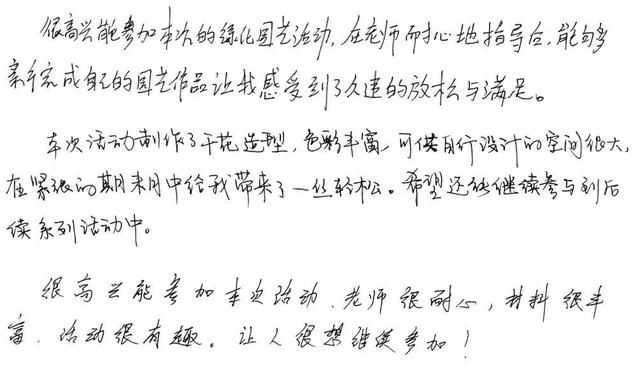 很高兴能参加本次的绿化园艺活动,在老师耐心地指导后,能够
亲手完成自己的园艺作品让我感受到了久违的放松与满足。
本次活动制作了干花造型,色彩丰富,可供自行设计的空间很大,
在紧张的期末月中给我带来了一丝轻松。希望还能继续参与到后
续系列活动中。
很高兴能参加本次活动.老师很耐心,材料很丰
富.活动很有趣。让人很想继续参加!